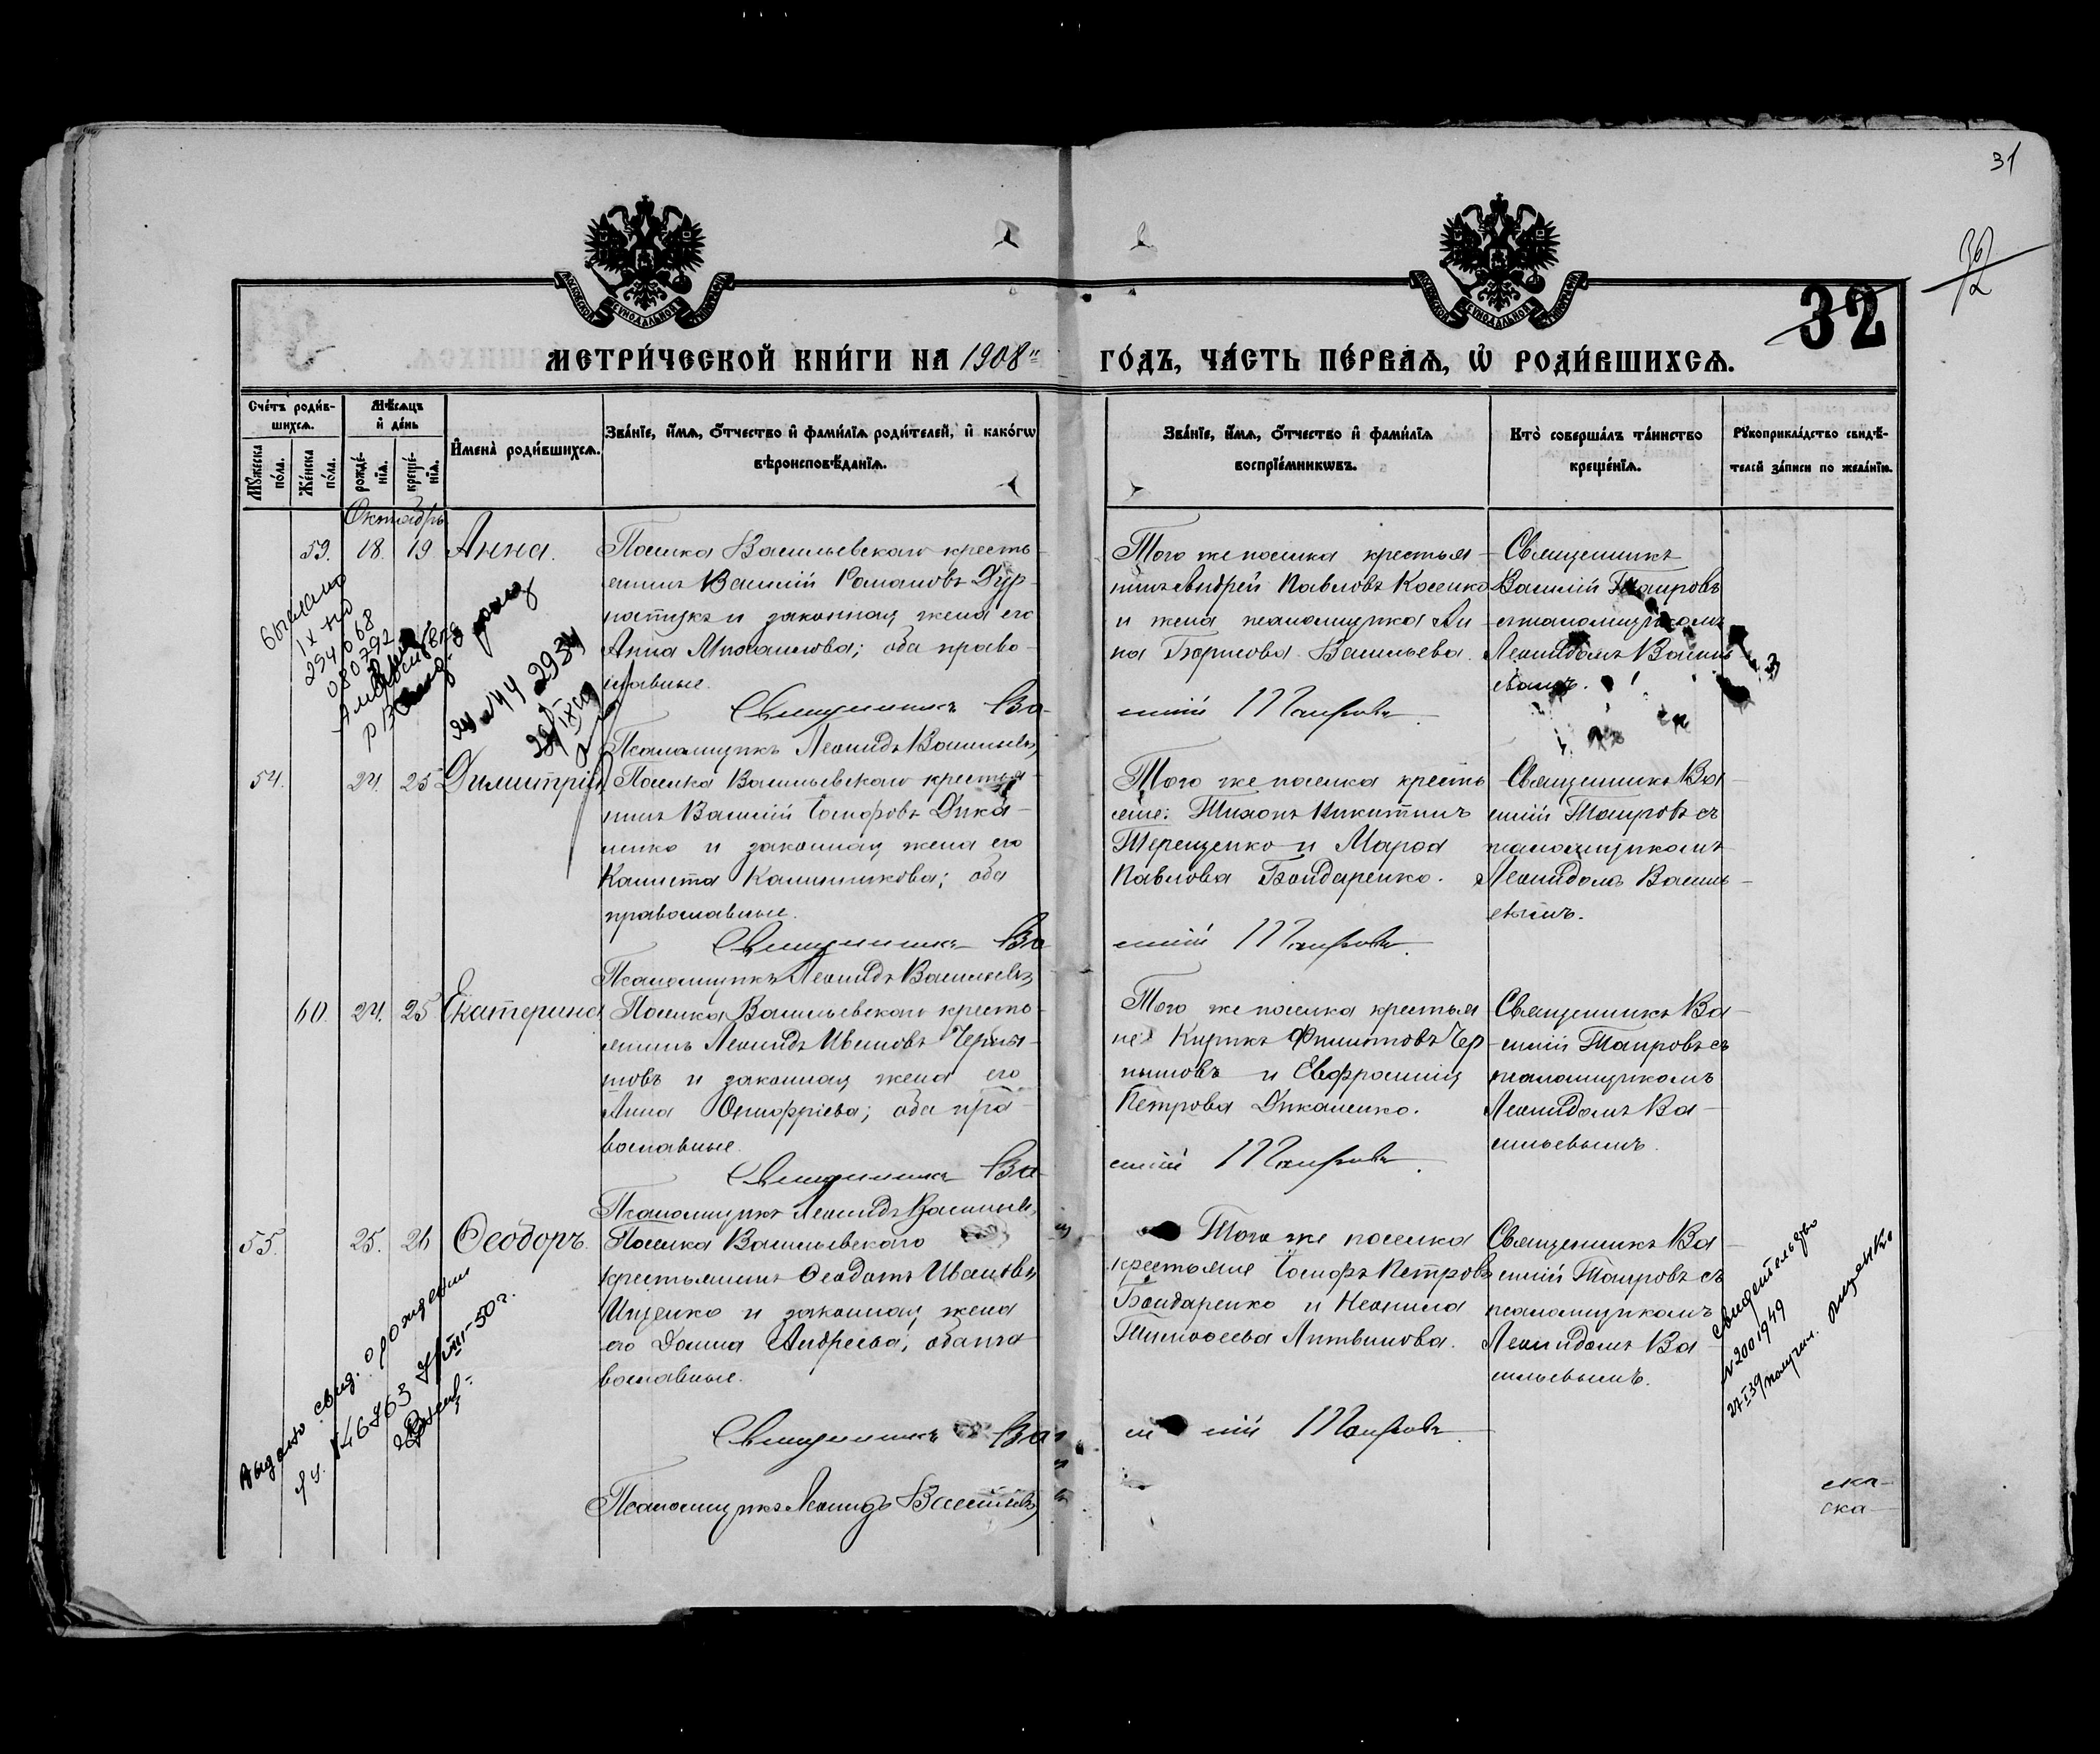 31
32
32
МЕТРИ́ЧЕСКОЙ КНИ́ГИ НА 1908
ГО́ДЪ, ЧА́СТЬ ПЕ́РВАЯ, Ѡ РОДИ́ВШИХСЯ.
Сче́тъ роди́в-
шихся.
Му́жеска по́ла.
Же́нска по́ла.
Мѣ́сяцъ
и де́нь
рожде́-
нія.
креще́-
нія.
Имена̀ роди́вшихся.
Зва́ніе, и́мя, о́тчество и фами́лія роди́телей, и како́гѡ
вѣроисповѣ́данія.
Зва́ніе, и́мя, о́тчество и фами́лія
воспріе́мниковъ.
Кто̀ соверша́лъ та́инство
креще́нія.
Рукоприкла́дство свидѣ́-
телей за́писи по жела́нію.
Октябрь
59. 18. 19 Анна.
Поселка Васильевскаго кресть-
янинъ Василій Романовъ
и законная жена его
Анна Михаилова; оба право-
славные.
Священникъ Ва-
Псаломщикъ Леонидъ Васильевъ
Того же поселка крестья-
нинъ Андрей Павловъ Косенко
и жена псаломщика Ан-
на Борисова Васильева.
силій Таировъ.
Священникъ
Василій Таировъ
съ псаломщикомъ
Леонидомъ Василь-
евымъ.
выслано
54. 24. 25 Димитрій
Поселка Васильевскаго крестья-
нинъ Василій Іосифовъ Дика-
ленко и законная жена его
Калиста Калинникова; оба
православные.
Священникъ Ва-
Псаломщикъ Леонидъ Васильевъ
Того же поселка кресть
яне: Тихонъ Никитинъ
Терещенко и Марѳа
Павлова Бондаренко.
силій Таировъ.
Священникъ Ва-
силій Таировъ съ
псаломщикомъ
Леонидомъ Василь-
евымъ.
60. 24. 25 Екатерина
Поселка Васильевскаго кресть-
янинъ Леонидъ Ивановъ Черны-
шовъ и законная жена его
Анна Онуфріева; оба пра-
вославные.
Священникъ Ва-
Псаломщикъ Леонидъ Васильевъ
Того же поселка крестья
не Кирикъ Филиповъ Чер-
нышовъ и Евфросинія
Петрова Дикаленко.
силій Таировъ.
Священникъ Ва-
силій Таировъ съ
псаломщикомъ
Леонидомъ Ва-
сильевымъ.
55. 25. 26 Ѳеодоръ.
Поселка Васильевскаго
крестьянинъ Ѳеодотъ Ивановъ
Ищенко и законная жена
его Домна Андреева; оба пра-
вославные.
Священникъ Ва-
Псаломщикъ Леонидъ Васильевъ
Того же поселка
крестьяне Іосифъ Петровъ
Бондаренко и Неонила
Тимоѳеева Литвинова.
силій Таировъ.
Священникъ Ва-
силій Таировъ съ
псаломщикомъ
Леонидомъ Ва-
сильевымъ.
Выдано свид. о рождении
свидетельство
N 2001949
27 I 39 получил. Ищенко
ска-
ска-